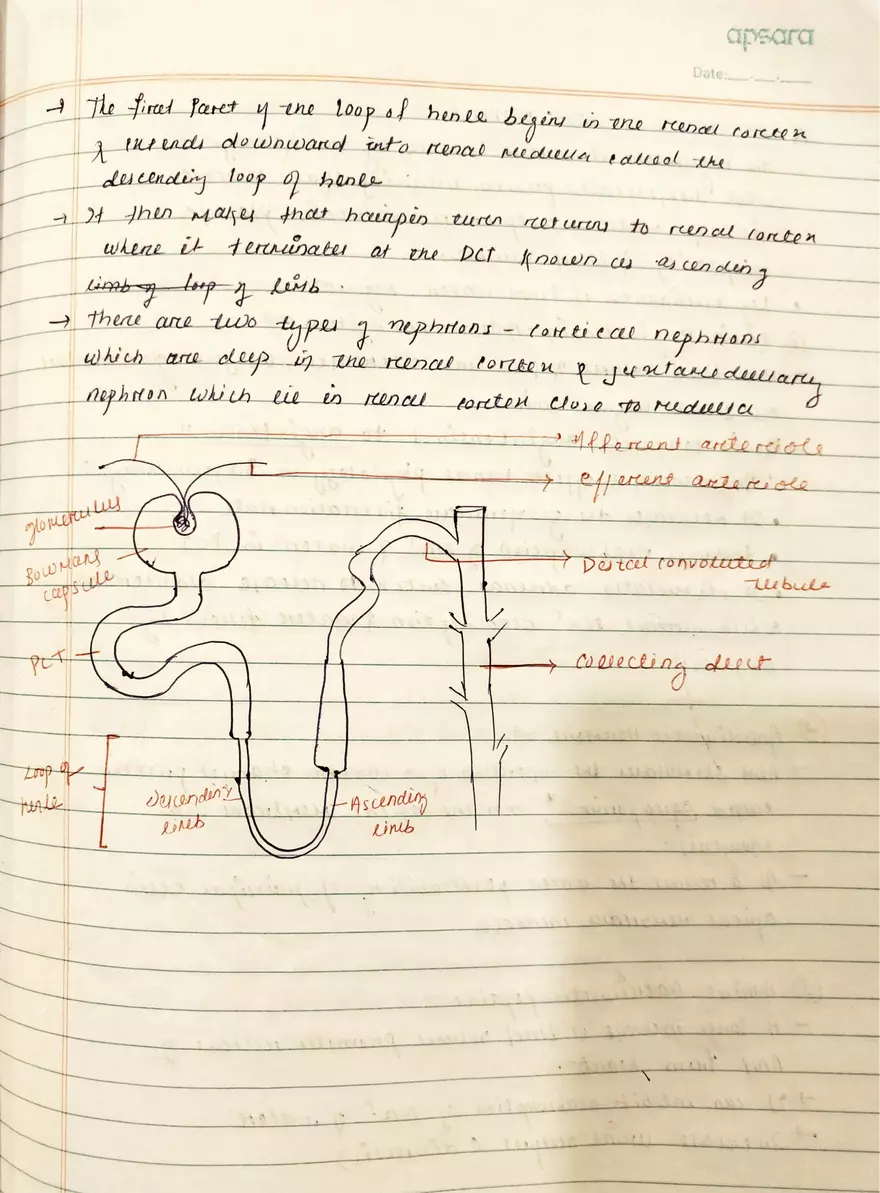 apsara
Date:__.__.__
→ The first Part of the loop of henle begins in the renal cortex
& extends downward into renal medulla called the
descending loop of henle
→ It then makes that hairpin turn returns to renal cortex
where it terminates at the DCT known as ascending
limb of loop of limb.
→ There are two types of nephrons - cortical nephrons
which are deep in the renal cortex & juxtamedullary
nephron which lie in renal cortex close to medulla
Afferent arteriole
efferent arteriole
glomerulus
Bowmans
capsule
Distal convoluted
tubule
PCT
Collecting duct
Loop of
henle
Descending
limb
Ascending
limb